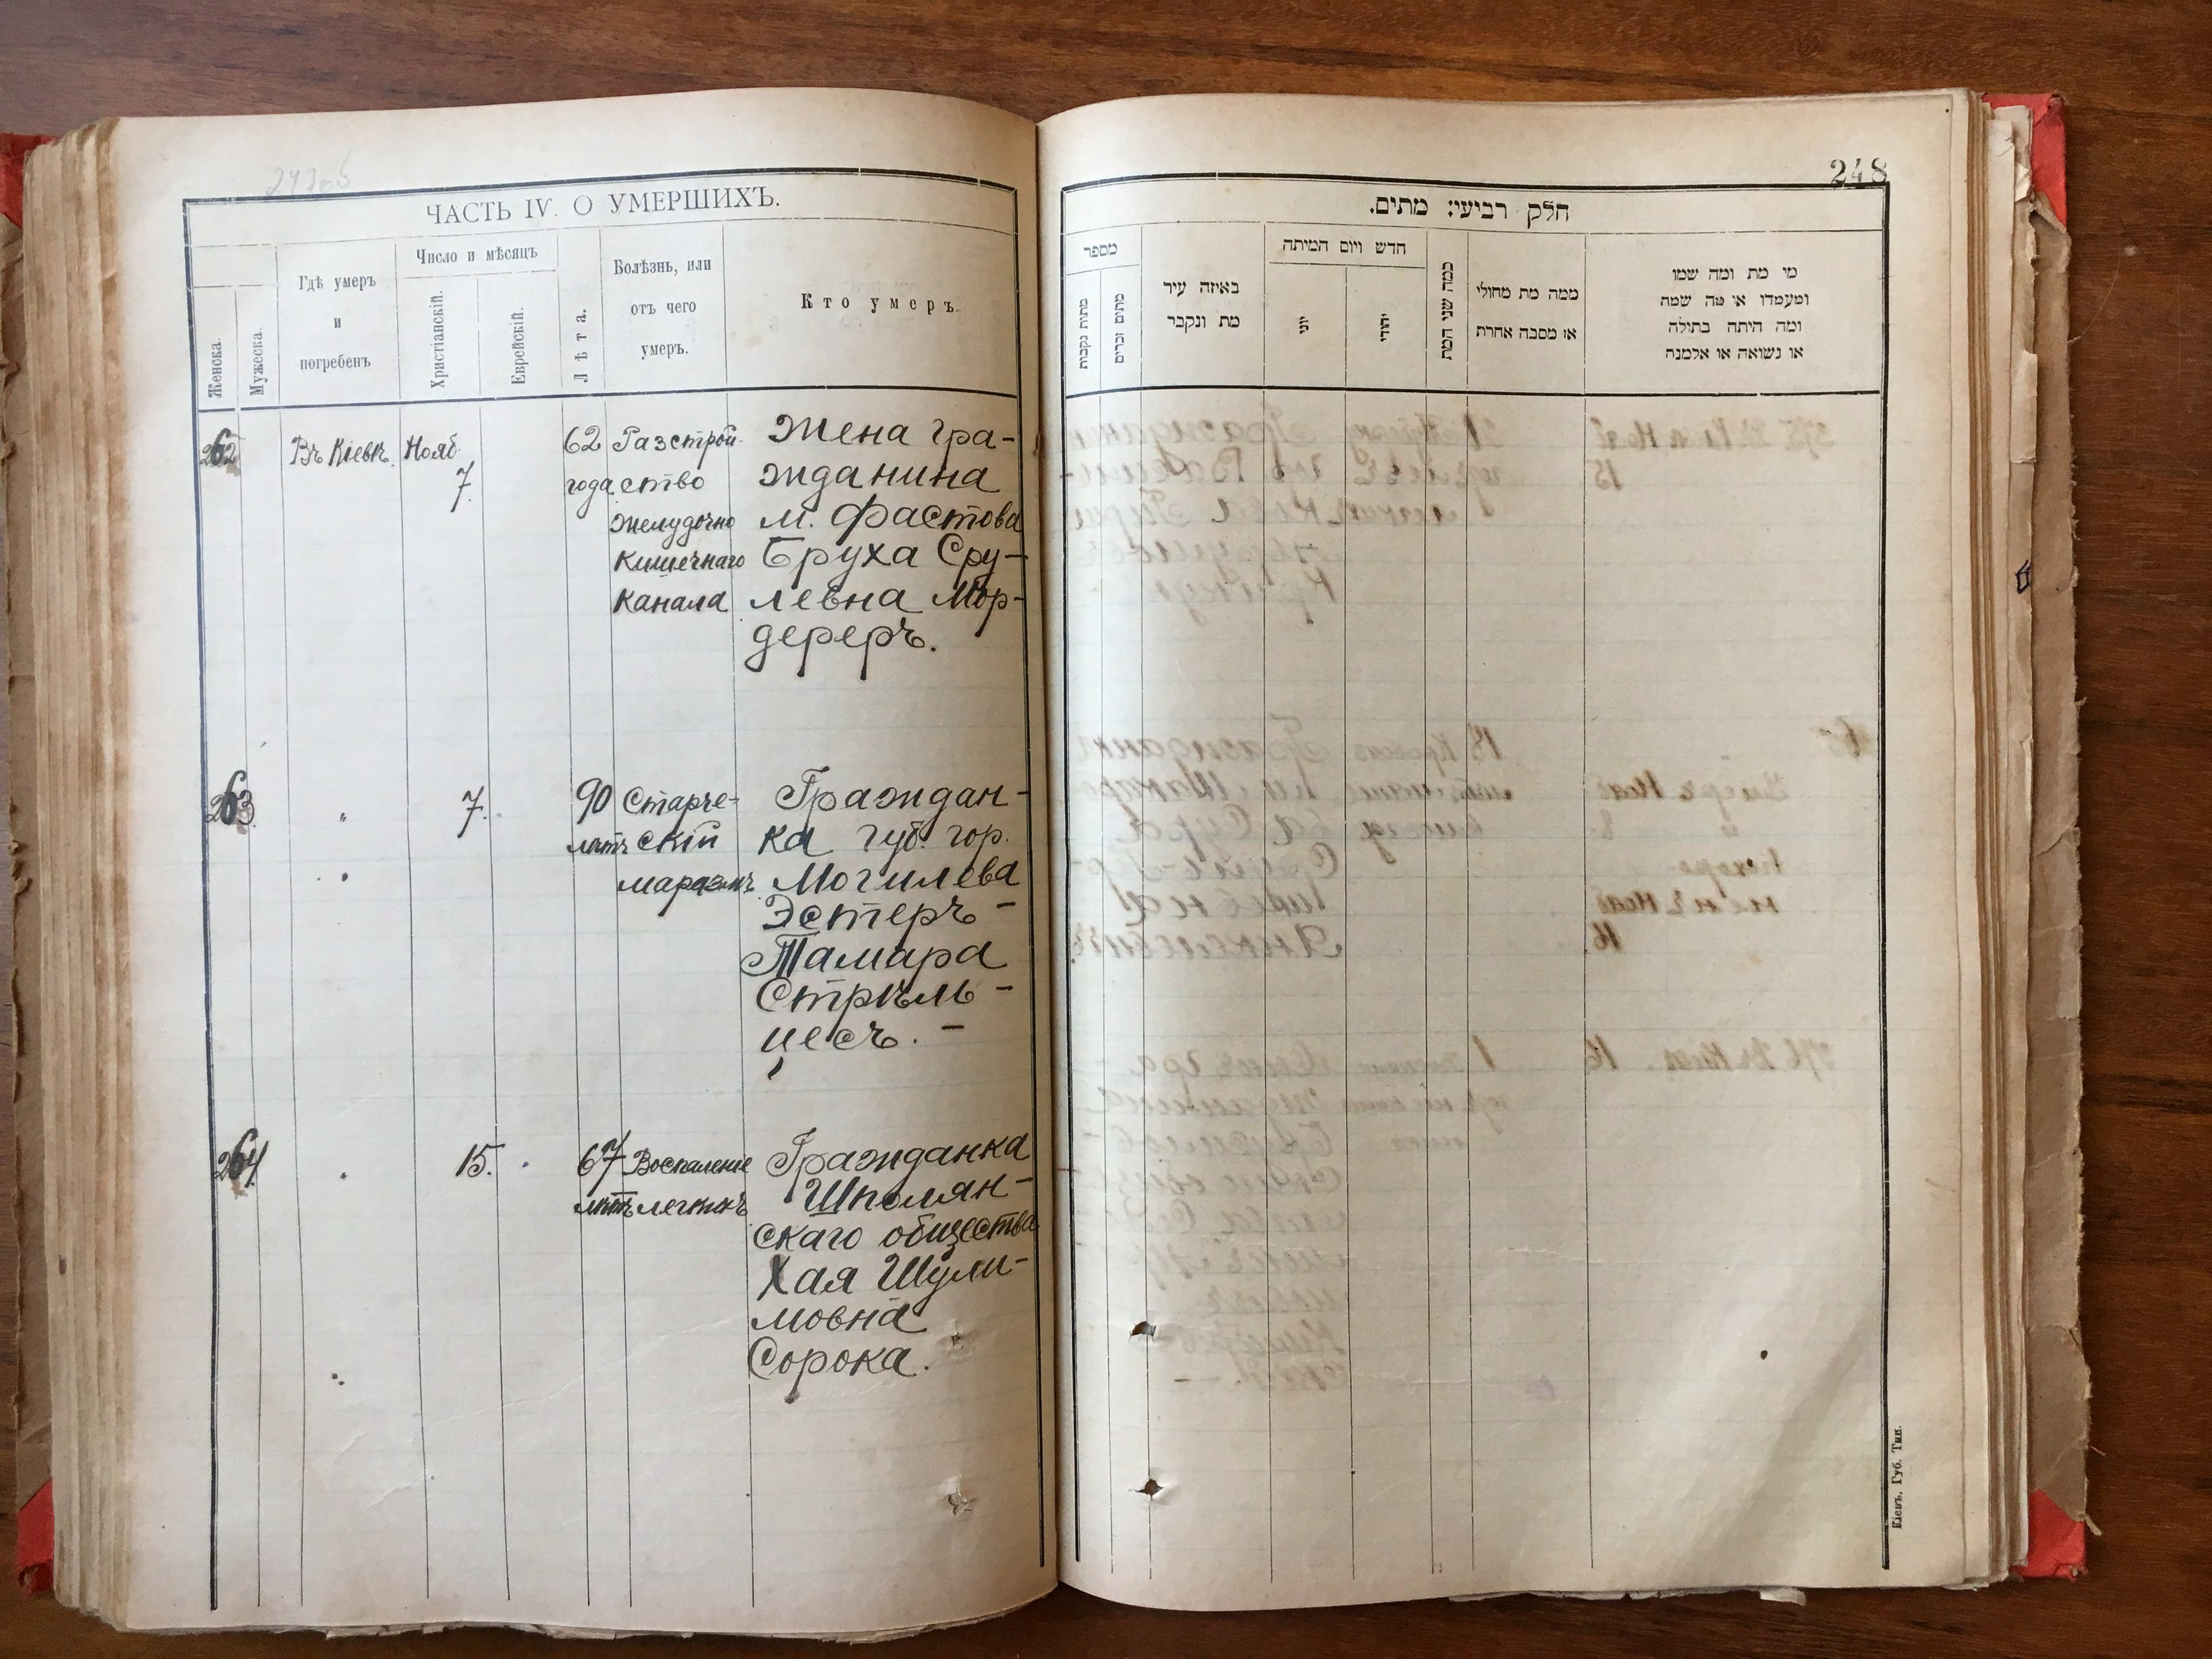 ЧАСТЬ IV. О УМЕРШИХЪ.
Женска.
Мужеска.
Гдѣ умеръ
и
погребенъ
Число и мѣсяцъ
Христіанскій.
Еврейскій.
Лѣта.
Болѣзнь, или
отъ чего
умеръ.
Кто умеръ.
262
Въ Кіевѣ.
Нояб.
7.
62
года
Разстрой-
ство
желудочно
кишечнаго
канала
Жена гра-
жданина
м. Фастова
Бруха Сру-
левна Мор-
дереръ.
263
"
7.
90
лѣтъ
Старче-
скій
маразмъ
Граждан-
ка губ. гор.
Могилева
Эстеръ-
Тамара
Стрѣль-
цесъ. -
264
"
15.
67
лѣтъ
Воспаленіе
легкихъ
Гражданка
Шполян-
скаго общества
Хая Шули-
мовна
Сорока.
248
חלק רביעי: מתים.
מספר
מתות נקבות
מתים זכרים
באיזה עיר
מת ונקבר
חדש ויום המיתה
יוני
יהודי
כמה שני המת
ממה מת מחולי
או מסבה אחרת
מי מת ומה שמו
ומעמדו או מה שמה
ומה היתה בתולה
או נשואה או אלמנה
Кіевъ. Губ. Тип.